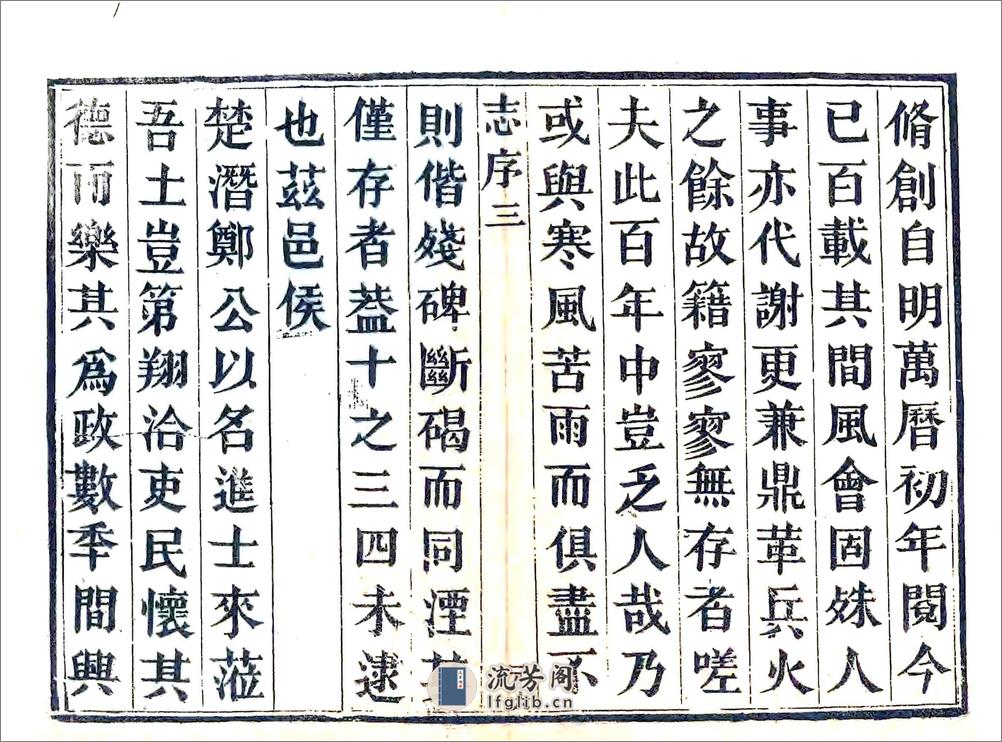 脩創自明萬曆初年閱今
已百載其間風會固殊人
事亦代謝更兼鼎革兵火
之餘故籍寥寥無存者嗟
夫此百年中豈乏人哉乃
或與寒風苦雨而俱盡不
志序 三
則偕殘碑斷碣而同湮其
僅存者葢十之三四未逮
也茲邑侯
楚潛鄭公以名進士來蒞
吾土豈第翔洽吏民懷其
德而樂其爲政數季間興
流芳阁
lfglib.cn